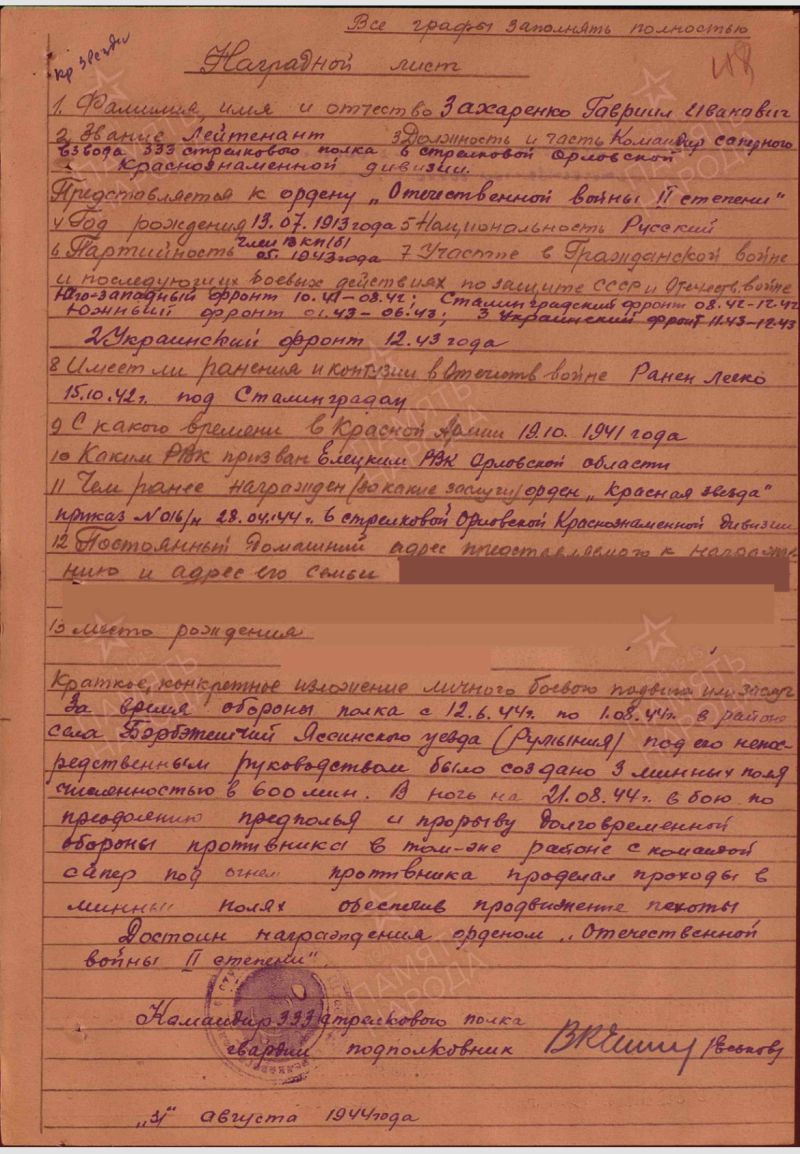 Все графы заполнять полностью
Кр звезды
Наградной лист
1. Фамилия, имя и отчество Захаренко Гавриил Иванович
2 Звание Лейтенант 3 Должность и часть Командир саперного
взвода 333 стрелкового полка 6 стрелковой Орловской
Краснознаменной дивизии.
Представляется к ордену „Отечественной войны II степени"
4 Год рождения 13.07.1913 года 5 Национальность Русский
6 Партийность член ВКП(б) 1943 года 7 Участие в Гражданской войне
и последующих боевых действиях по защите СССР и Отечеств. войне
Юго-западный фронт 10.41-08.42; Сталинградский фронт 08.42-12.42
Южный фронт 01.43-06.43; 3 Украинский фронт 11.43-12.43
2 Украинский фронт 12.43 года
8 Имеет ли ранения и контузии в Отечеств войне Ранен легко
15.10.42г. под Сталинградом
9 С какого времени в Красной Армии 19.10.1941 года
10 Каким РВК призван Елецким РВК Орловской области
11 Чем ранее награжден /за какие заслуги/ орден „Красная звезда"
приказ N 016/н 28.04.44г. 6 стрелковой Орловской Краснознаменной дивизии
12 Постоянный домашний адрес представляемого к награжде-
нию и адрес его семьи
13 Место рождения
Краткое, конкретное изложение личного боевого подвига или заслуг
За время обороны полка с 12.6.44г. по 1.08.44г. в районе
села Ясского уезда (Румыния) под его непос-
редственным руководством было создано 3 минных поля
численностью в 600 мин. В ночь на 21.08.44г. в бою по
преодолению предполья и прорыву долговременной
обороны противника в том-же районе с командой
сапер под огнем противника проделал проходы в
минных полях обеспечив продвижение пехоты
Достоин награждения орденом „Отечественной
войны II степени".
Командир 333 стрелкового полка
гвардии подполковник
„31" августа 1944 года
ПАМЯТЬ НАРОДА